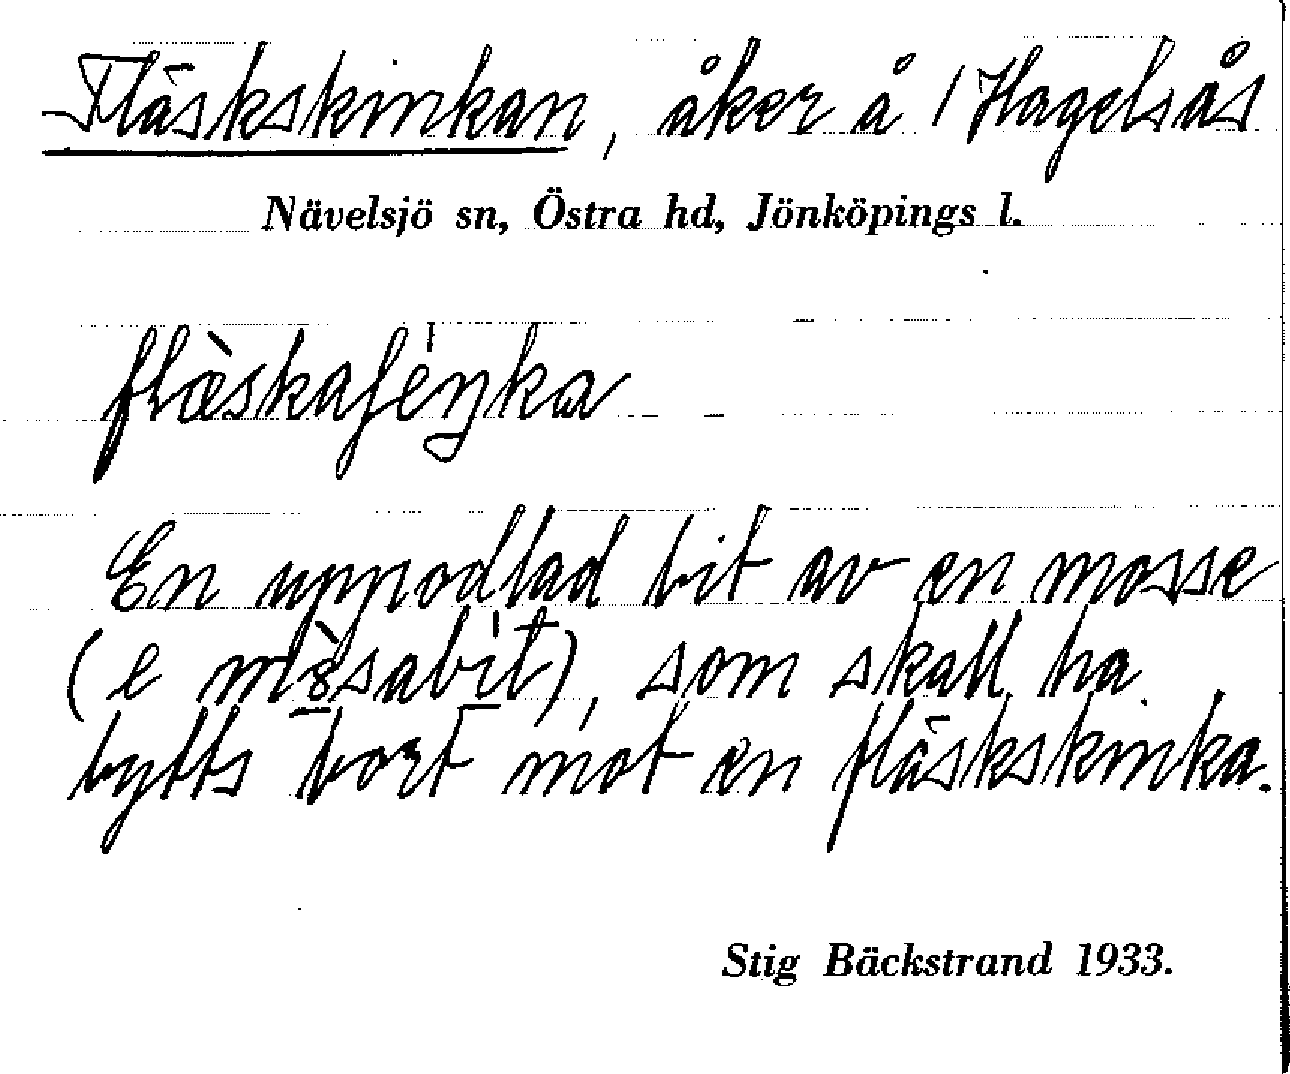 Fläskskinkan, åker å 1 Hagelsås
Nävelsjö sn, Östra hd, Jönköpings l.
flæ̀skaʃéŋka
En uppodlad bit av en mosse
(e mòsabít), som skall ha
bytts bort mot en fläskskinka.
Stig Bäckstrand 1933.